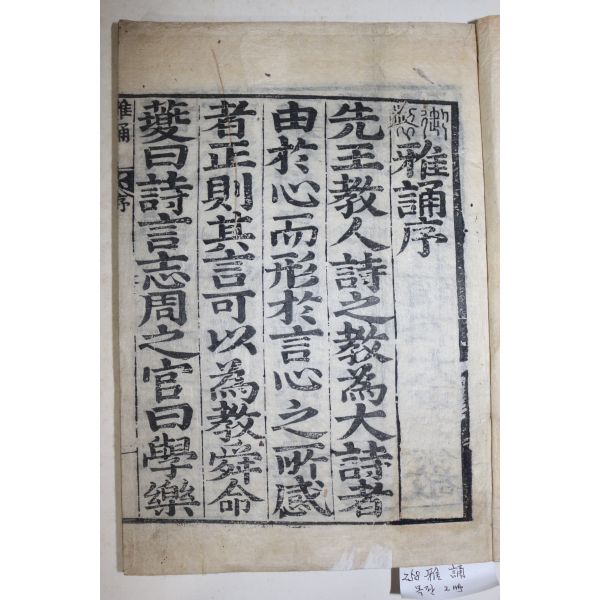 御㝎雅誦序
先王教人詩之教為大詩者
由於心而形於言心之所感
者正則其言可以為教舜命
夔曰詩言志周之官曰學樂
雅誦 序
258 雅 誦
목판 2冊